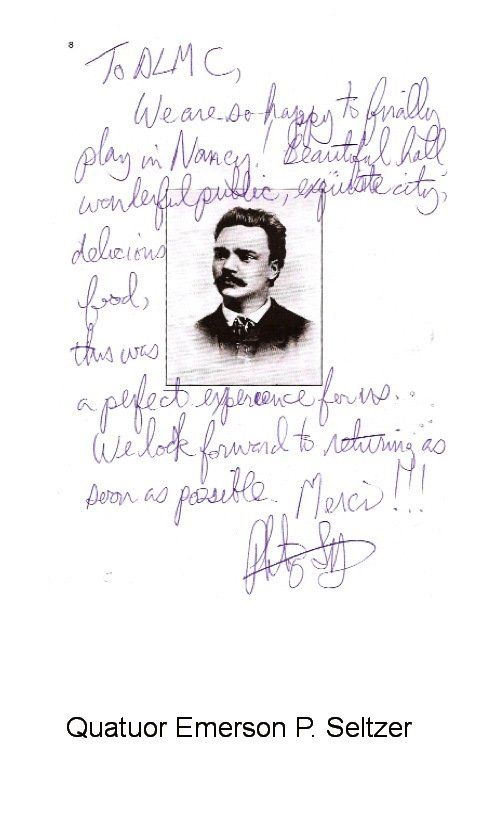 8
To ALMC,
We are so happy to finally
play in Nancy! Beautiful hall
wonderful public, exquisite city,
delicious
food,
this was
a perfect experience for us...
We look forward to returning as
soon as possible. Merci!!!
Quatuor Emerson P. Seltzer